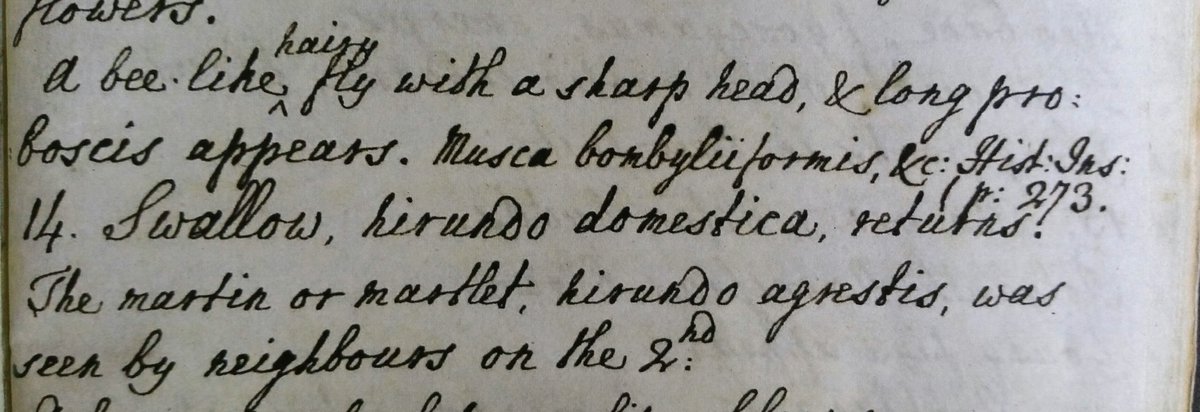 flowers.
A bee-like ^hairy fly with a sharp head, & long pro:
boscis appears. Musca bombyliiformis, &c: Hist: Ins:
( p: 273.
14. Swallow, hirundo domestica, returns.
The martin or martlet, hirundo agrestis, was
seen by neighbours on the 2:nd